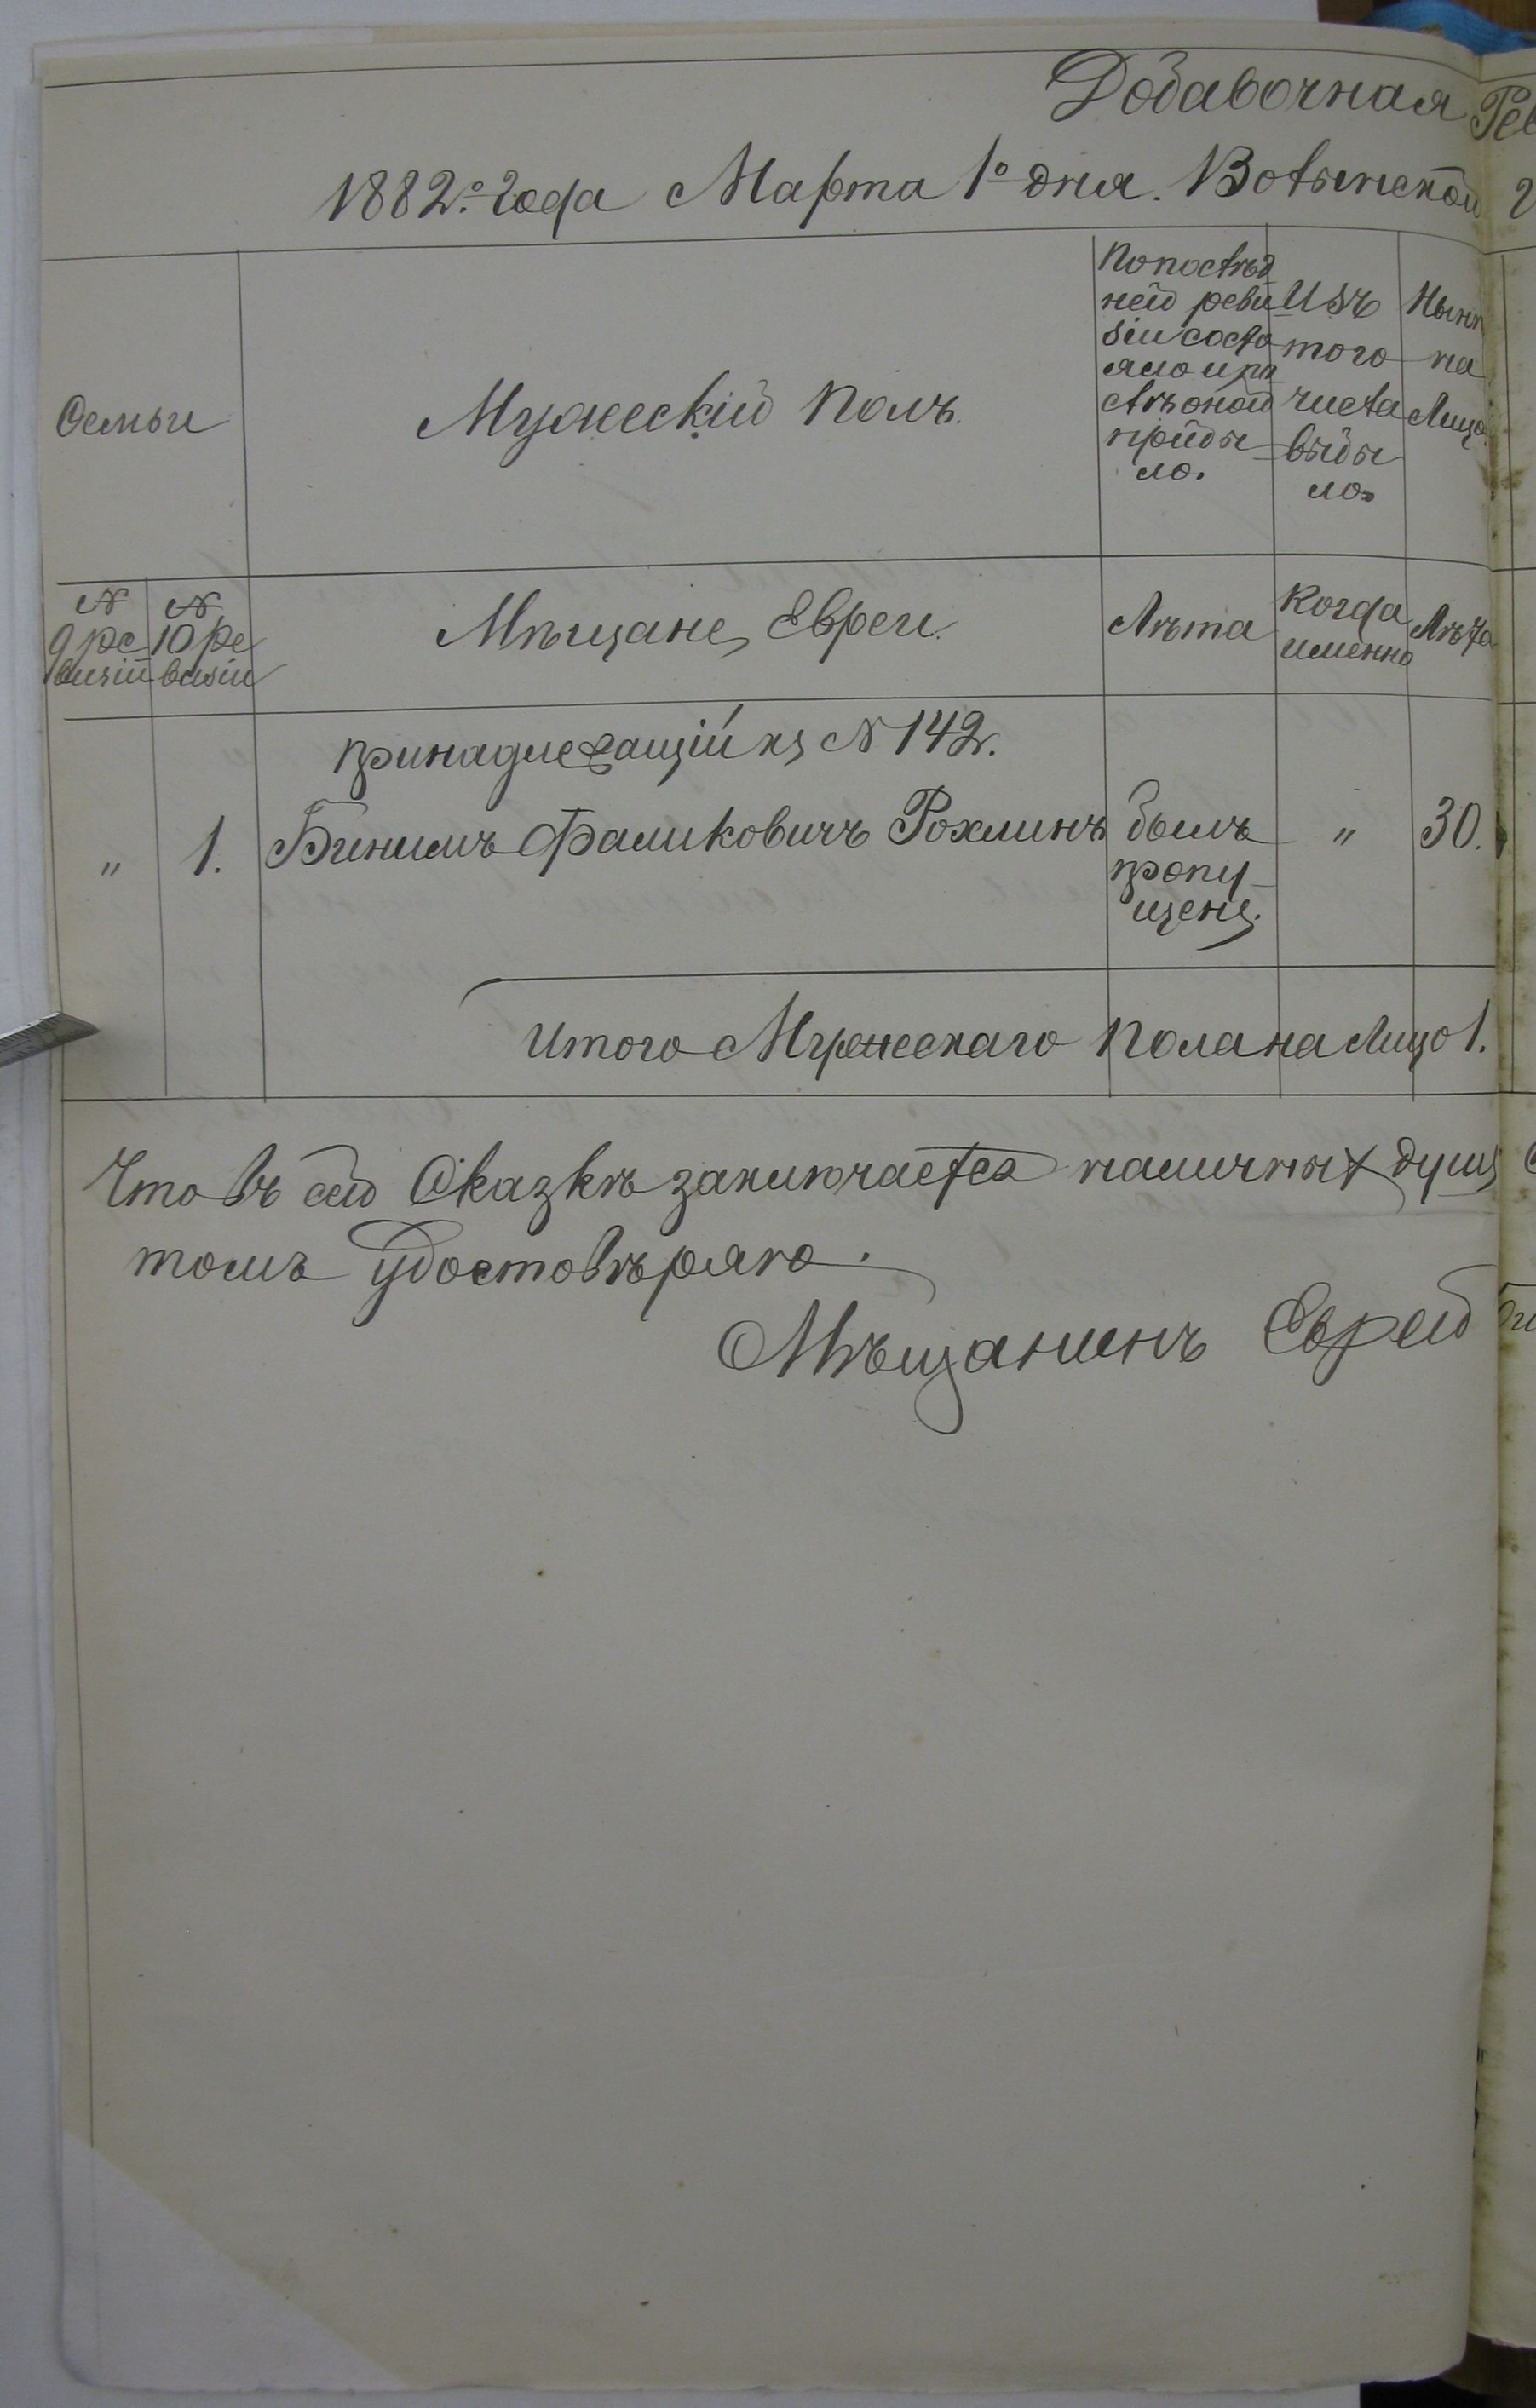 Добавочная Рев
1882го года Марта 1го дня. Волынской
Семьи
Мужескій Полъ.
Попослѣд
ней реви
зіи состо
яло и пп
слѣ оной
прибы
ло.
Изъ
того
числа
выбы
ло.
Нынѣ
на
Лицо.
№
9 ре
визіи
№
10 ре
визіи
Мѣщане, Евреи.
Лѣта
Когда
именно
Лѣта
принадлежащій къ № 142.
„ 1. Бинимъ Фаликовичъ Рохлинъ былъ „ 30.
пропу
щенъ.
Итого Мужескаго Пола на Лицо 1.
Что въ сей Сказкѣ заключается наличныхъ душъ
томъ удостовѣряю.
Мѣщанинъ Еврей